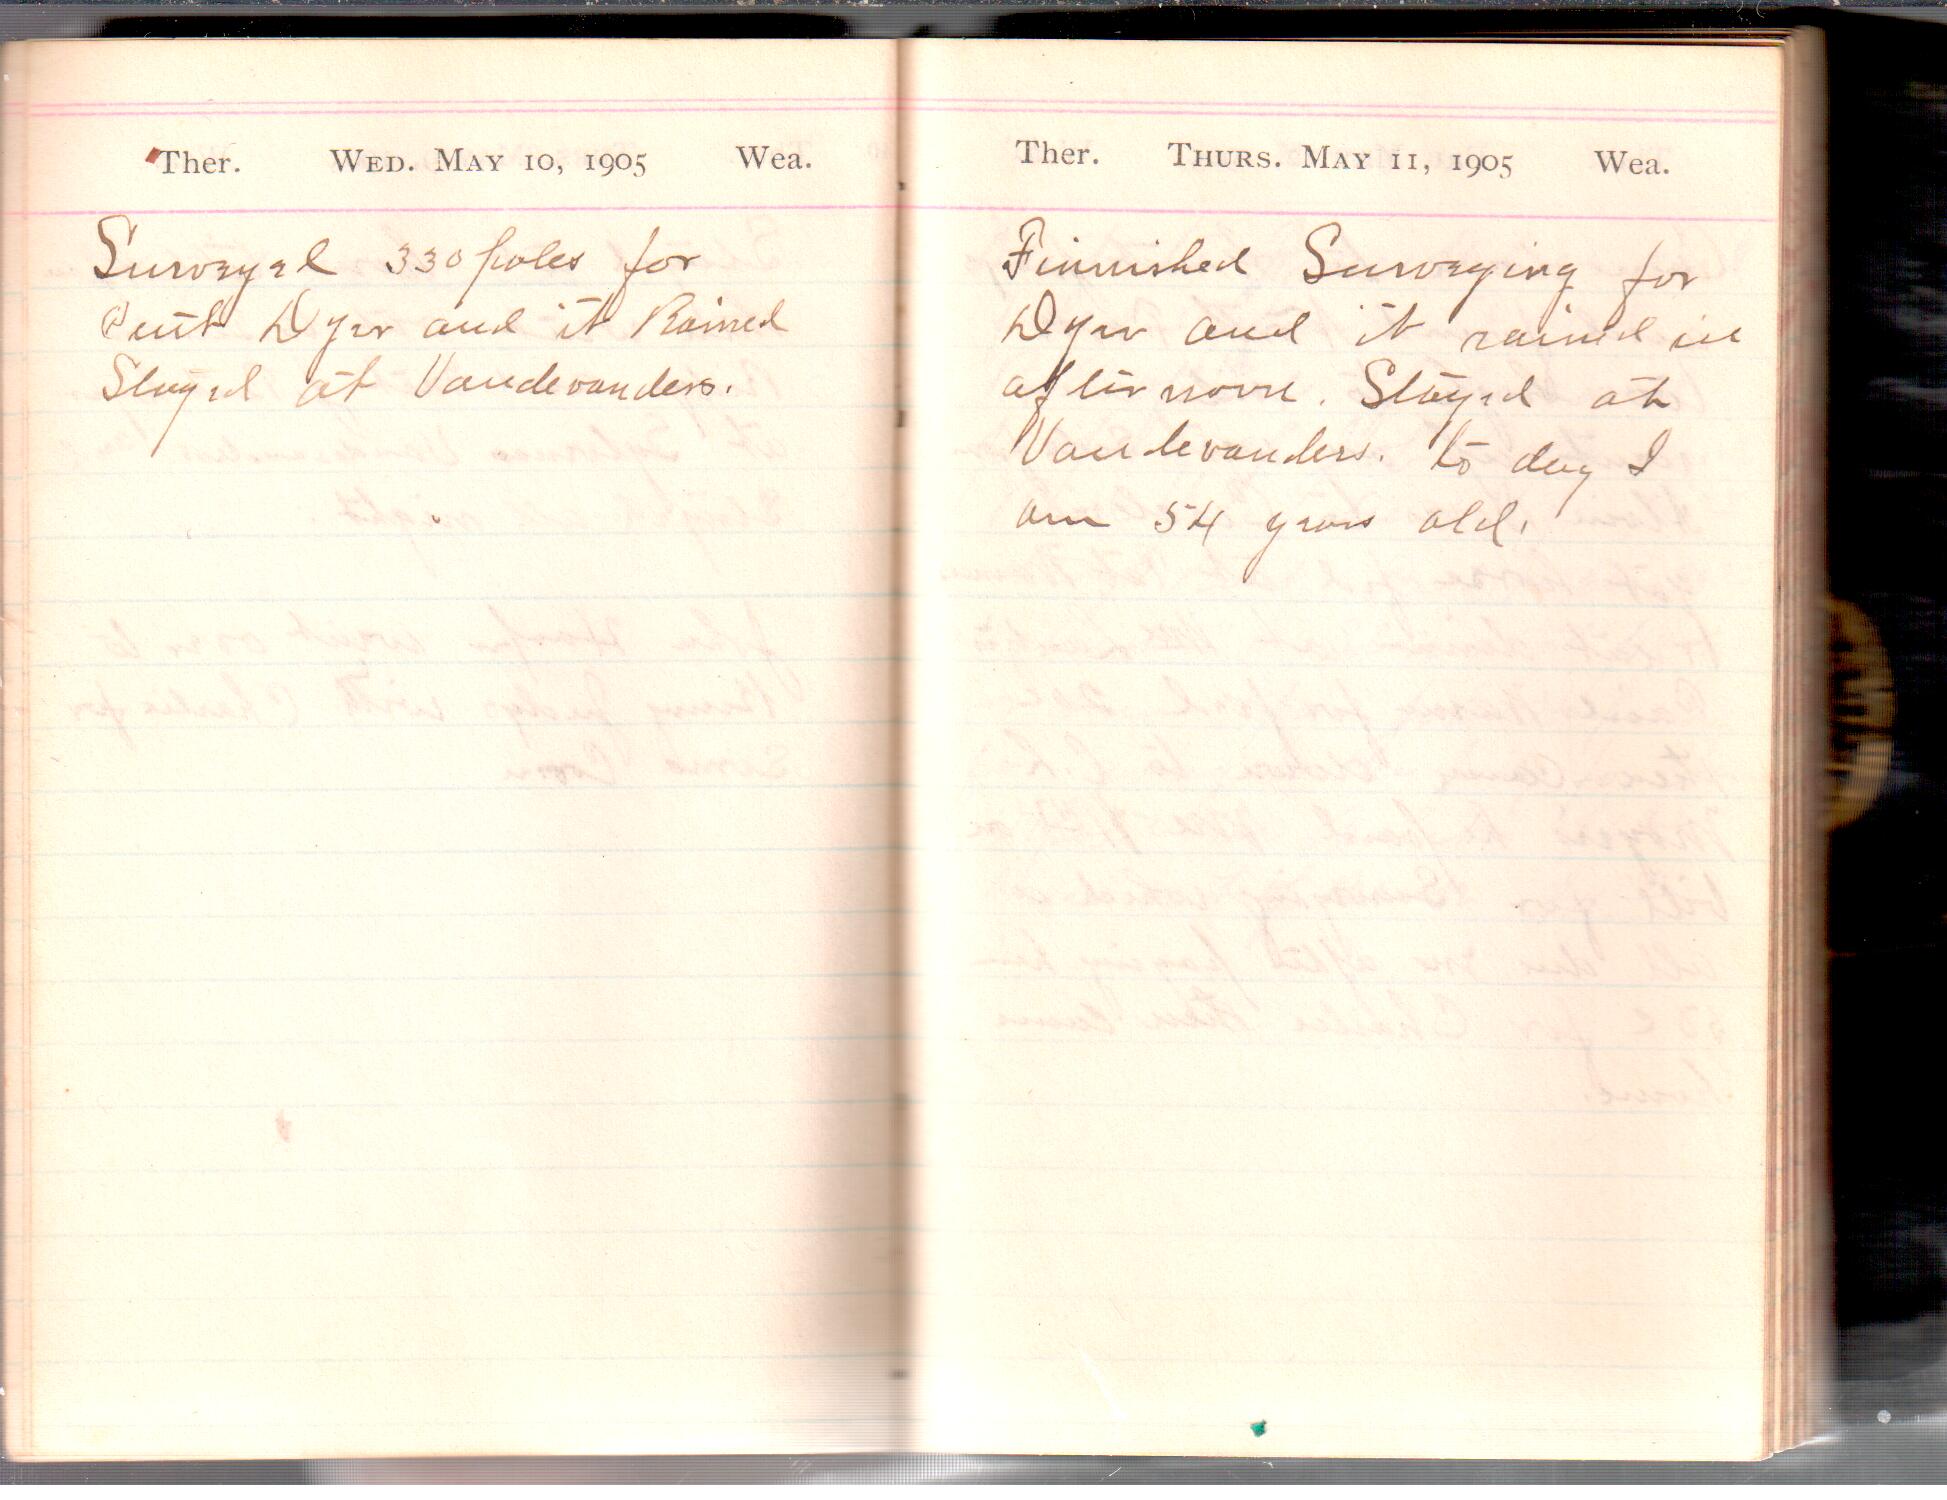 Ther. WED. MAY 10, 1905 Wea.
Surveyed 330 poles for
Dyer and it Rained
Stayed at Vandevanders.
Ther. THURS. MAY 11, 1905 Wea.
Finnished Surveying for
Dyer and it rained in
afternoon. Stayed at
Vandevanders. to day I
am 54 years old.